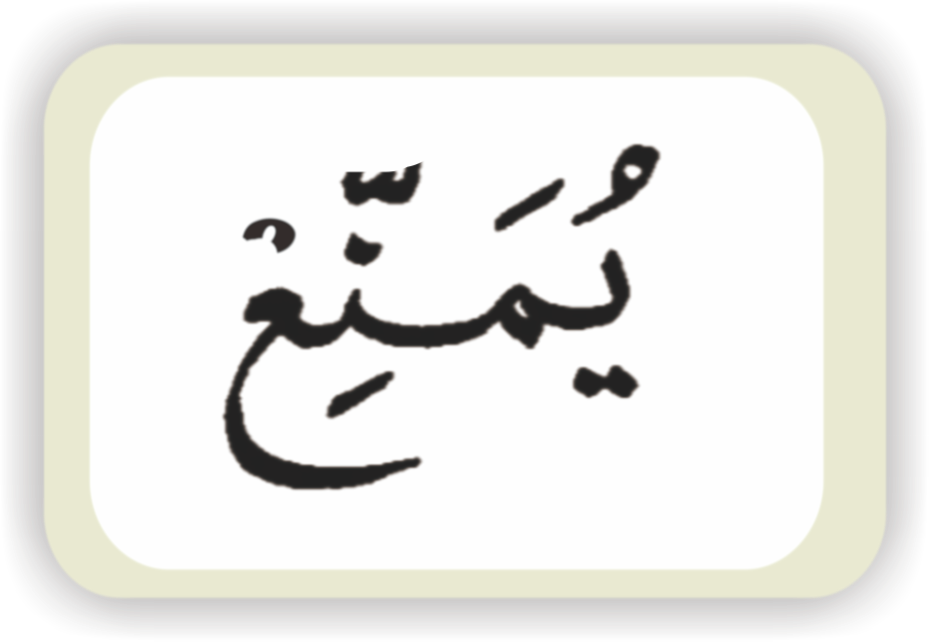 يُمَنِّعْ